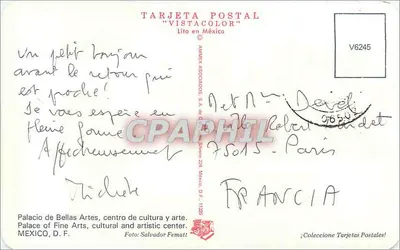 TARJETA POSTAL
"VISTACOLOR"
Lito en México
V6245
Un petit bonjour
avant le retour qui
est proche!
Je vous espère en
pleine forme
Affectueusement
Michèle
M et Mme
Robert
75015 - Paris
FRANCIA
CPAPHIL
Palacio de Bellas Artes, centro de cultura y arte.
Palace of Fine Arts, cultural and artistic center.
MEXICO, D. F.
Foto: Salvador Fematt
¡Coleccione Tarjetas Postales!